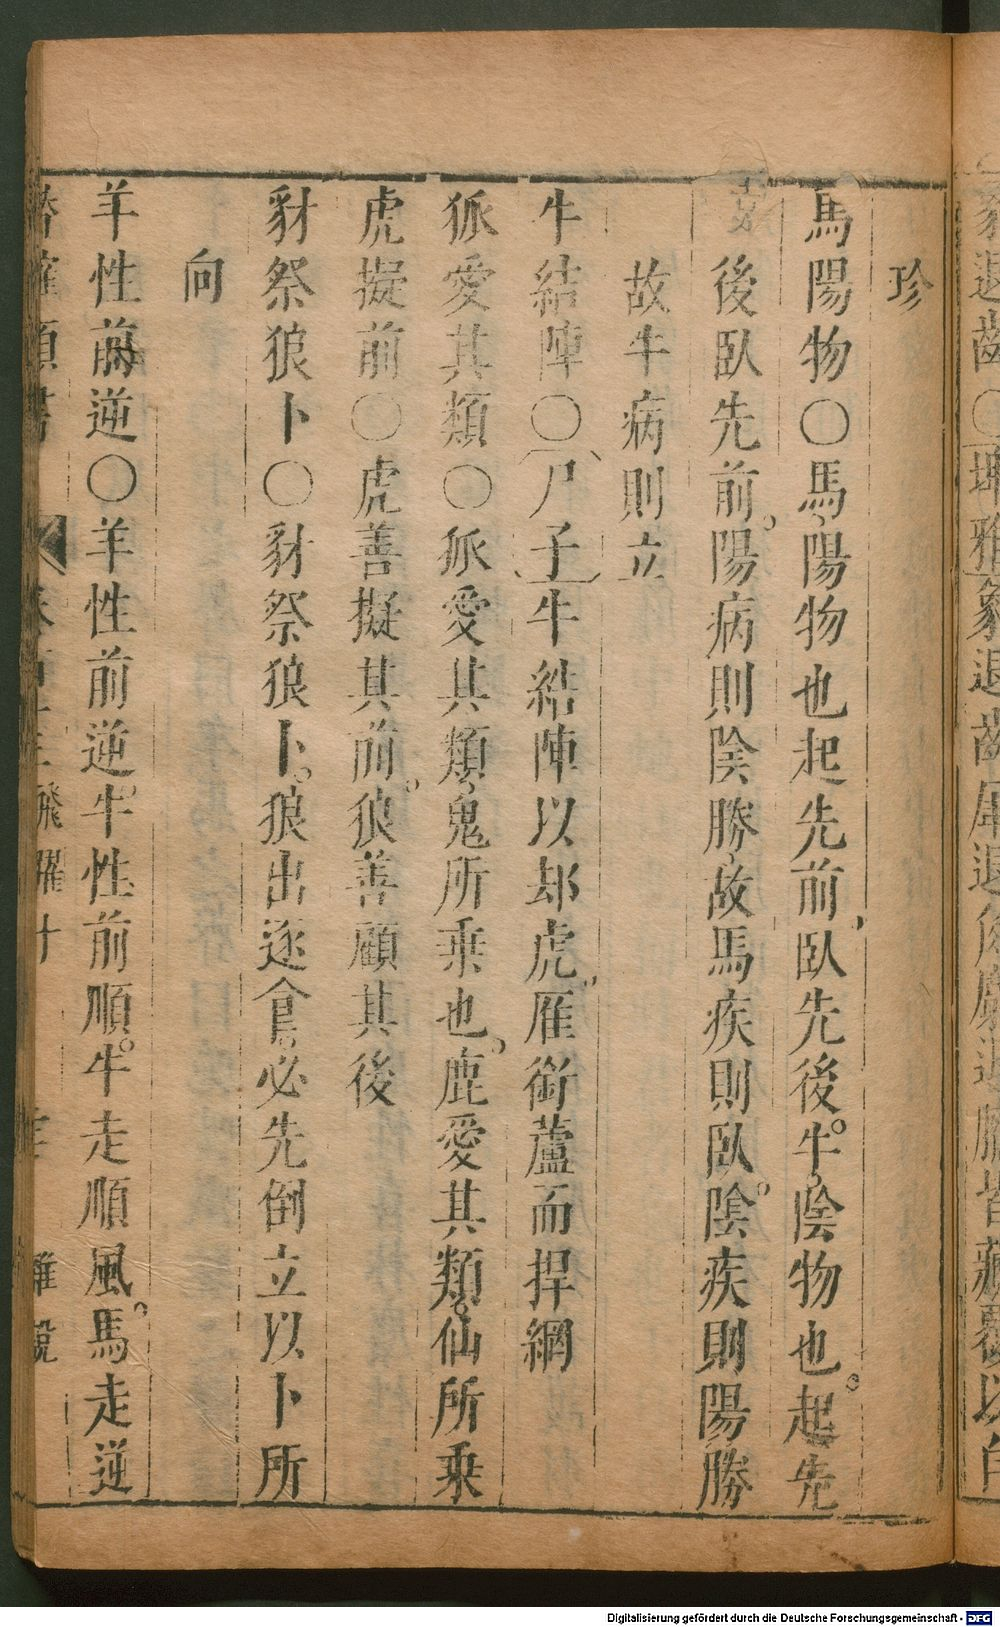 珍
馬陽物〇馬陽物也起先前臥先後牛陰物也起先
後臥先前陽病則陰勝故馬疾則臥陰疾則陽勝
故牛病則立
牛結陣〇尸子牛結陣以却虎雁銜蘆而捍網
狐愛其類〇狐愛其類鬼所乘也鹿愛其類仙所乘
虎擬前〇虎善擬其前狼善顧其後
豺祭狼卜〇豺祭狼卜狼出逐食必先倒立以卜所
向
羊性前逆〇羊性前逆牛性前順牛走順風馬走逆
Digitalisierung gefördert durch die Deutsche Forschungsgemeinschaft - DFG